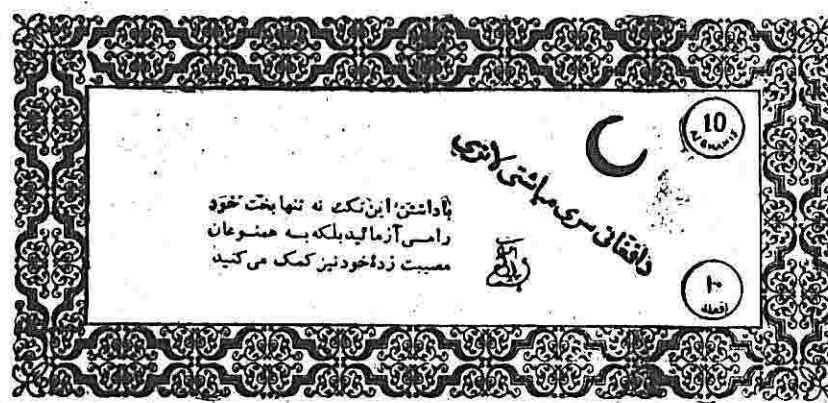 10
AFGHANIS
دافغانی سری میاشتی لاتری
باداشتن این تکت نه تنها بخت خود
را می آزمائید بلکه به همنوعان
مصیبت زدۀ خود نیز کمک می کنید
۱۰